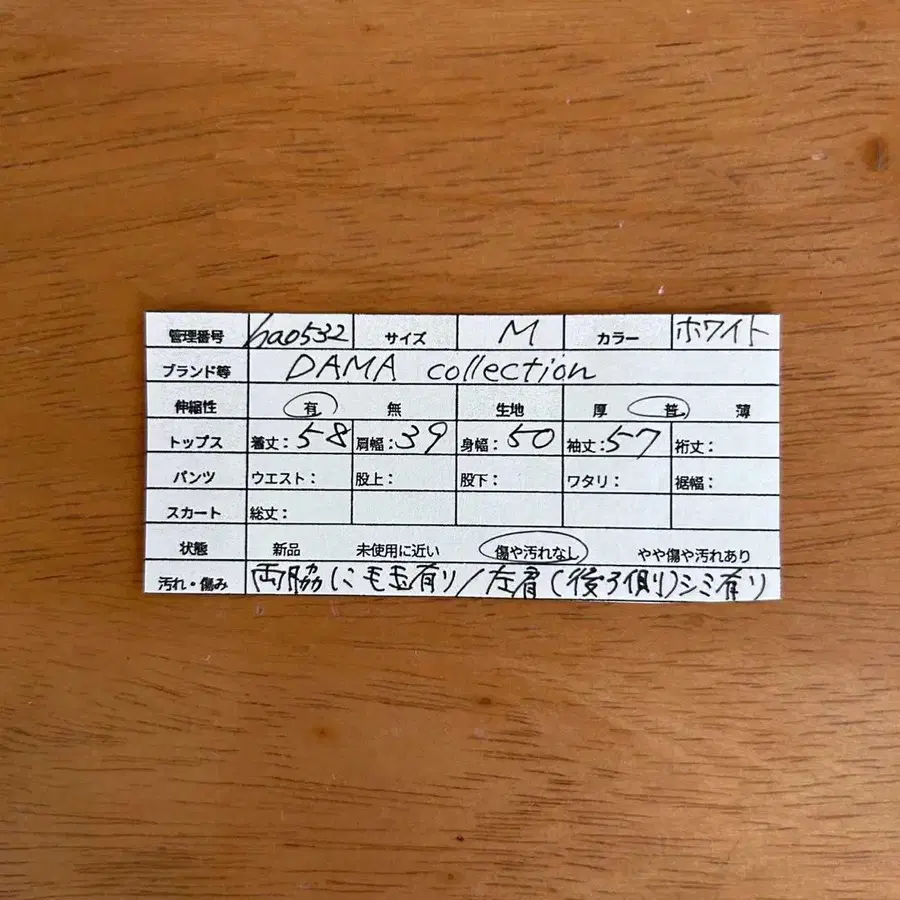 管理番号 ha0532 サイズ M カラー ホワイト
ブランド等 DAMA collection
伸縮性 有 無 生地 厚 普 薄
トップス 着丈：58 肩幅：39 身幅：50 袖丈：57 裄丈：
パンツ ウエスト： 股上： 股下： ワタリ： 裾幅：
スカート 総丈：
状態 新品 未使用に近い 傷や汚れなし やや傷や汚れあり
汚れ・傷み 両脇に毛玉有り/左肩(後ろ側)シミ有り